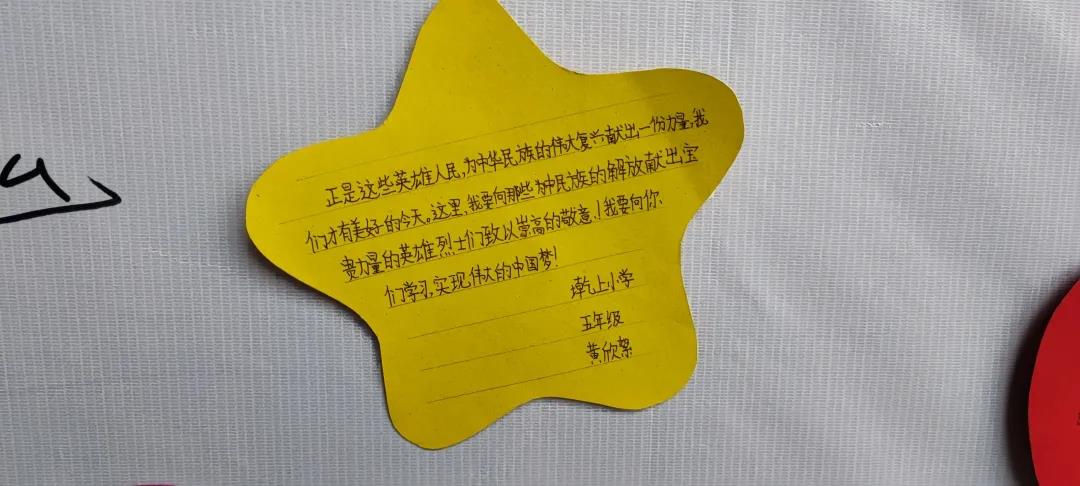 正是这些英雄人民,为中华民族的伟大复兴献出一份力量,我
们才有美好的今天。这里,我要向那些为中民族的解放献出宝
贵力量的英雄烈士们致以崇高的敬意!我要向你
们学习,实现伟大的中国梦!
上小学
五年级
黄欣絮